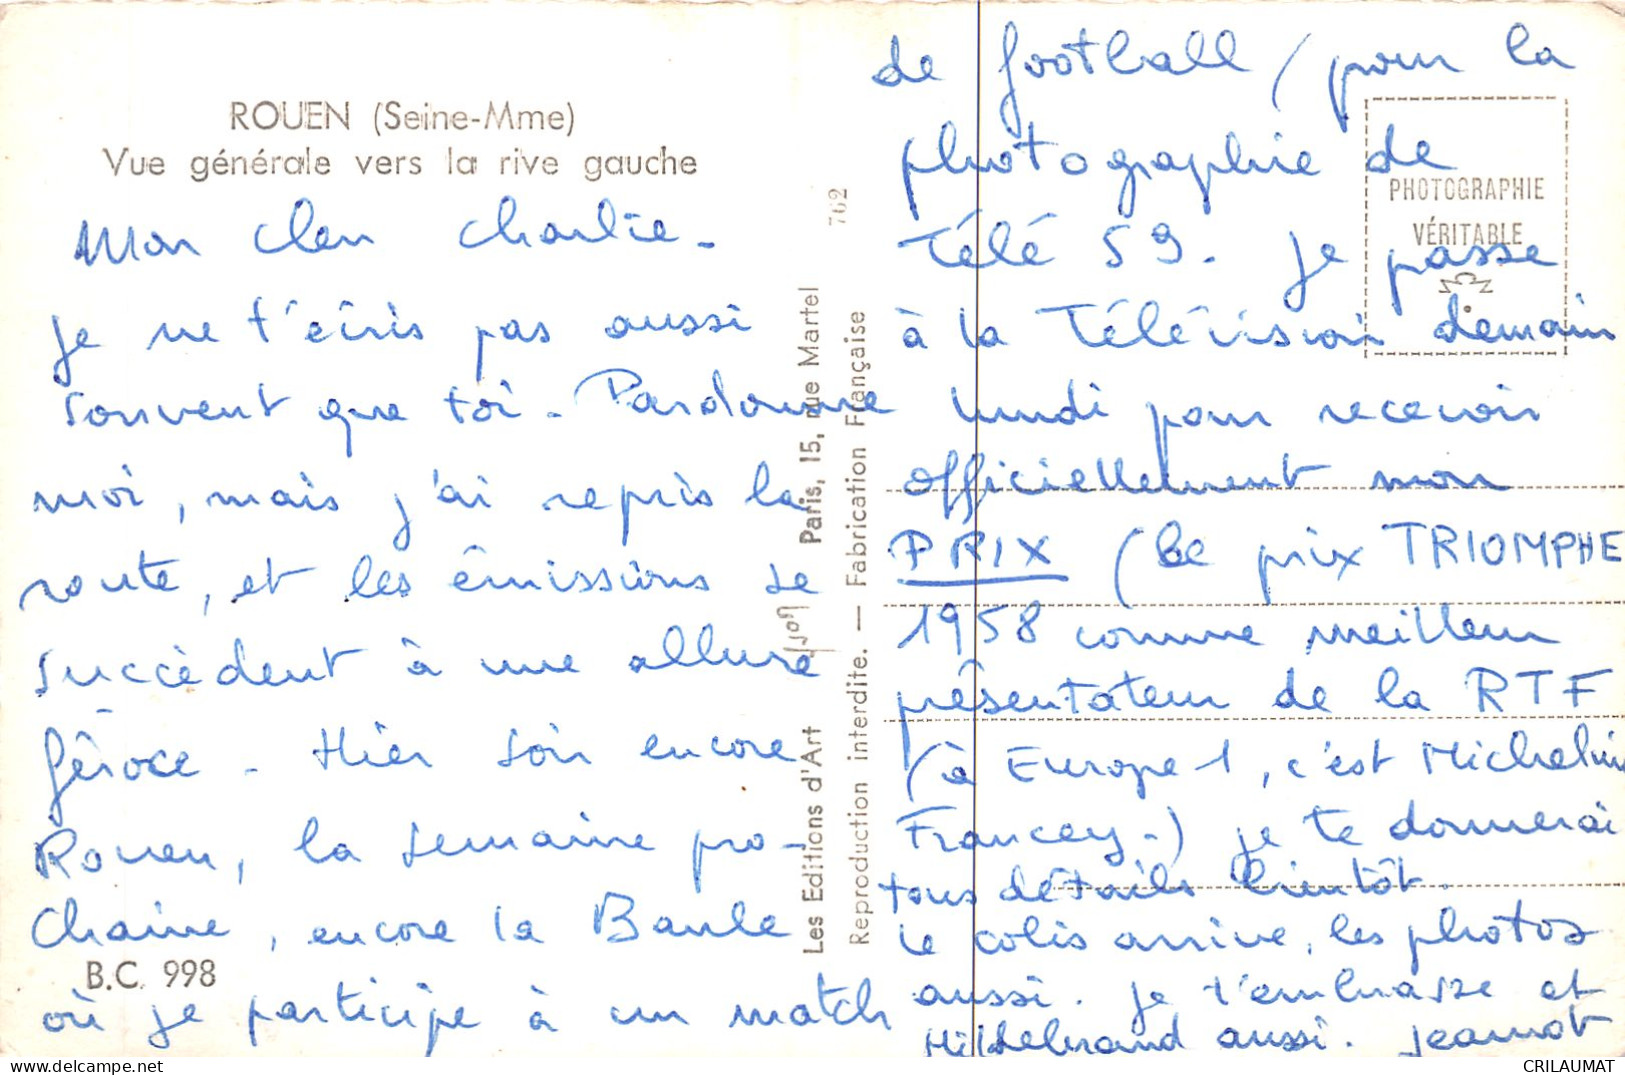 ROUEN (Seine-Mme)
Vue générale vers la rive gauche
Mon cher Charlie -
Je ne t'écris pas aussi
souvent que toi - Pardonne
moi, mais j'ai repris la
route, et les émissions se
succèdent à une allure
féroce - Hier soir encore
Rouen, la semaine pro-
chaine, encore la Baule
B.C. 998
où je participe à un match
762
Les Editions d'Art Paris, 15, rue Martel
Reproduction interdite. — Fabrication Française
PHOTOGRAPHIE
VÉRITABLE
de football (pour la
photographie de
Télé 59. Je passe
à la Télévision demain
lundi pour recevoir
officiellement mon
PRIX (le prix TRIOMPHE
1958 comme meilleur
présentateur de la RTF
(à Europe 1, c'est Micheline
Francey -) je te donnerai
tous détails bientôt.
Le colis arrive, les photos
aussi. Je t'embrasse et
Hildebrand aussi. Jeannot
CRILAUMAT